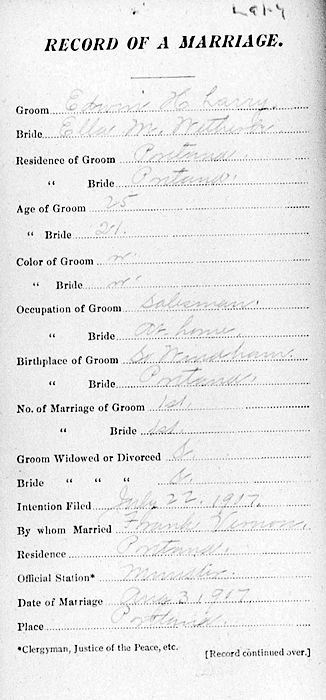 RECORD OF A MARRIAGE.
Groom Edwin H. Larry.
Bride Ella M.
Residence of Groom Portland.
" Bride Portland.
Age of Groom 25
" Bride 21.
Color of Groom w.
" Bride w.
Occupation of Groom Salesman.
" Bride At home.
Birthplace of Groom So. Windham.
" Bride Portland.
No. of Marriage of Groom 1st.
" Bride 1st.
Groom Widowed or Divorced
Bride " " "
Intention Filed July 22. 1917.
By whom Married Frank Vernon.
Residence Portland.
Official Station* Minister.
Date of Marriage Aug 3, 1917
Place Portland.
*Clergyman, Justice of the Peace, etc. [Record continued over.]